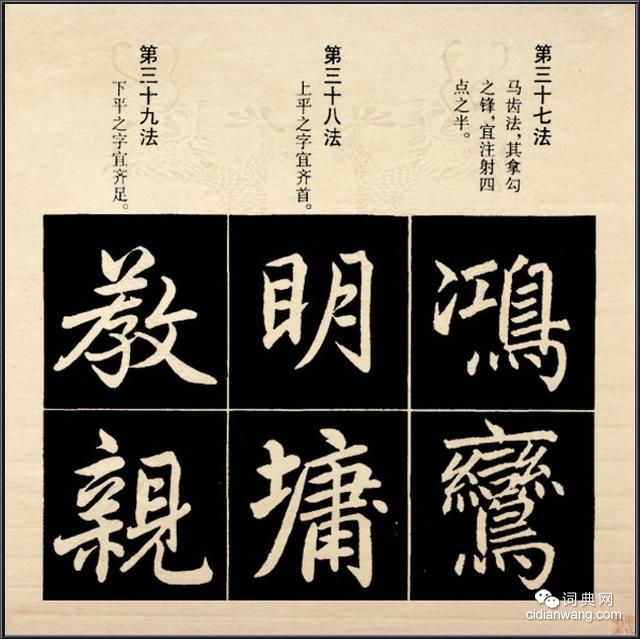 第三十七法
马齿法，其拿勾
之锋，宜注射四
点之半。
鴻
鸞
第三十八法
上平之字宜齐首。
明
墉
第三十九法
下平之字宜齐足。
教
親
词典网
cidianwang.com